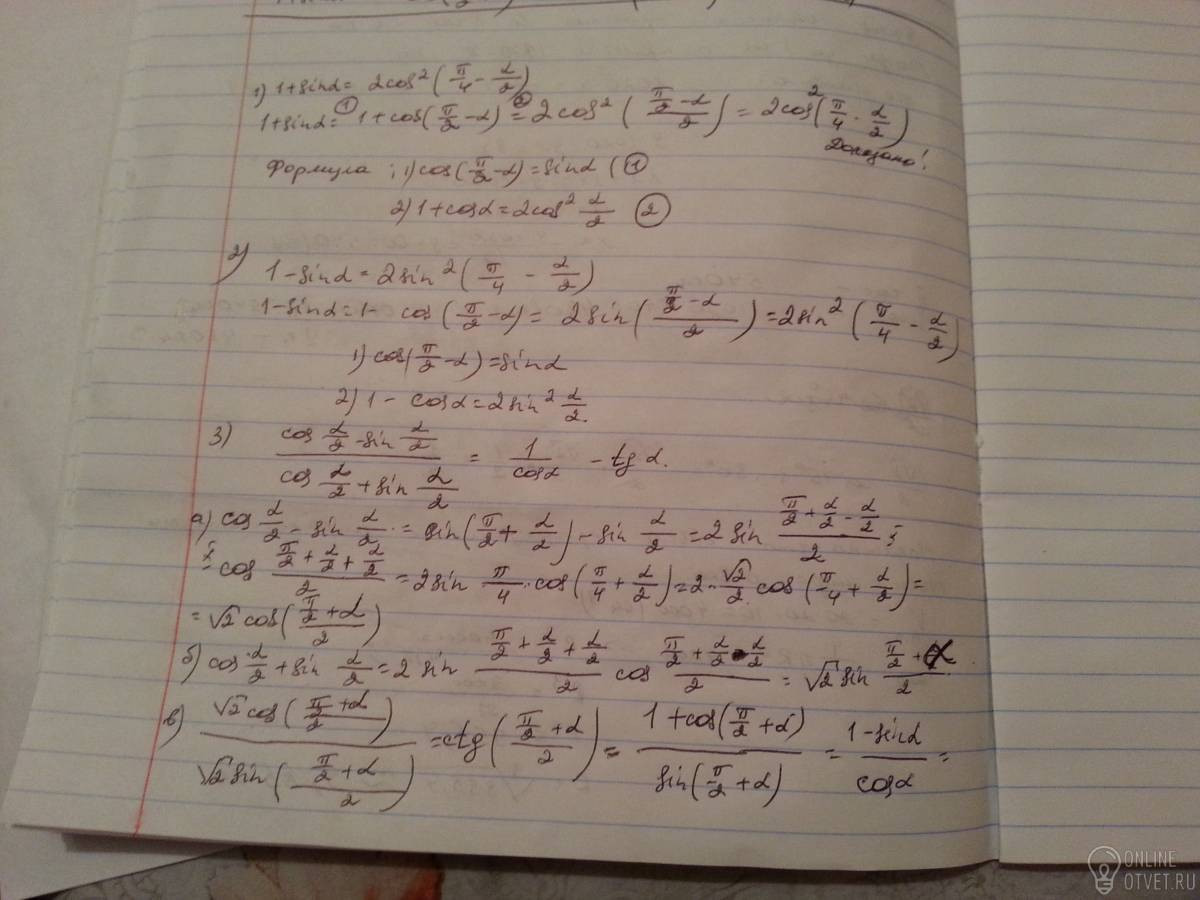 1) 1+sinα = 2cos²(π/4 - α/2)
1+sinα = ① 1+cos(π/2 - α) ②= 2cos²((π/2 - α)/2) = 2cos²(π/4 - α/2)
Доказано!
Формула : 1) cos(π/2 - α) = sinα ( ①
2) 1+cosα = 2cos² α/2 ②
2)
1-sinα = 2sin²(π/4 - α/2)
1-sinα = 1- cos(π/2 - α) = 2sin((π/2 - α)/2) = 2sin²(π/4 - α/2)
1) cos(π/2 - α) = sinα
2) 1 - cosα = 2sin² α/2.
3) (cos α/2 - sin α/2)/(cos α/2 + sin α/2) = 1/cosα - tgα.
а) cos α/2 - sin α/2 = sin(π/2 + α/2) - sin α/2 = 2 sin (π/2 + α/2 - α/2)/2
cos (π/2 + α/2 + α/2)/2 = 2sin π/4 · cos(π/4 + α/2) = 2·√2/2 cos(π/4 + α/2) =
= √2 cos((π/2 + α)/2)
б) cos α/2 + sin α/2 = 2 sin (π/2 + α/2 + α/2)/2 cos (π/2 + α/2 - α/2)/2 = √2 sin (π/2 + α)/2
в) (√2 cos((π/2 + α)/2))/(√2 sin((π/2 + α)/2)) = ctg((π/2 + α)/2) = (1+cos(π/2 + α))/(sin(π/2 + α)) = (1-sinα)/cosα =
ONLINE
OTVET.RU